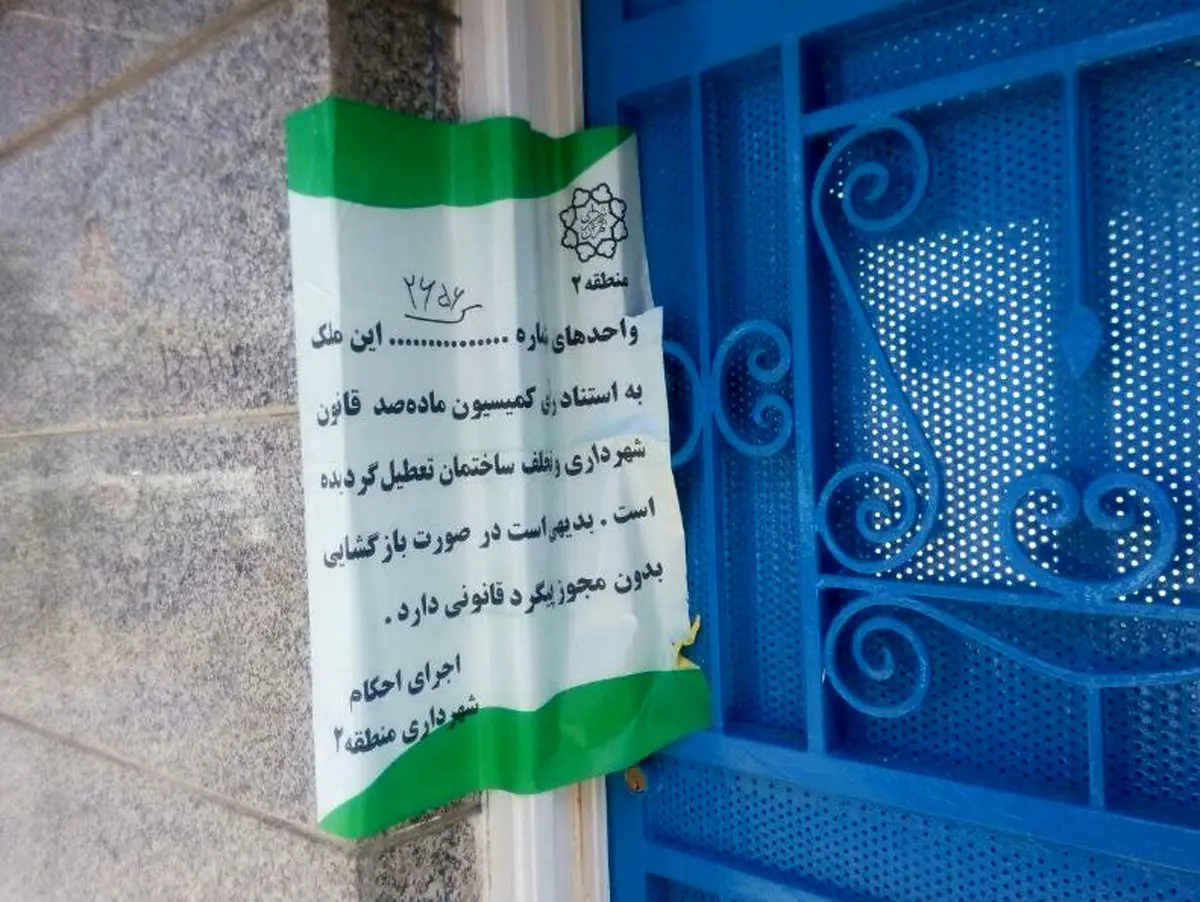 منطقه ۲
۲۶۵۶
واحدهای شماره ............... این ملک
به استناد رای کمیسیون ماده‌صد قانون
شهرداری و تخلف ساختمان تعطیل گردیده
است . بدیهی است در صورت بازگشایی
بدون مجوز پیگرد قانونی دارد .
اجرای احکام
شهرداری منطقه ۲